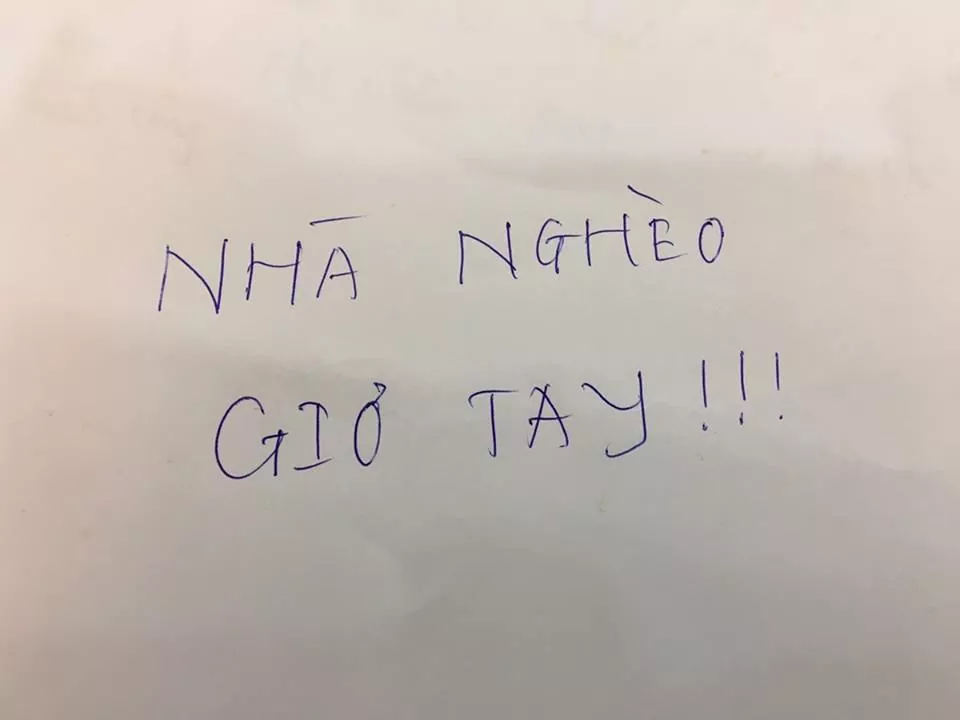 NHÀ NGHÈO
GIƠ TAY!!!